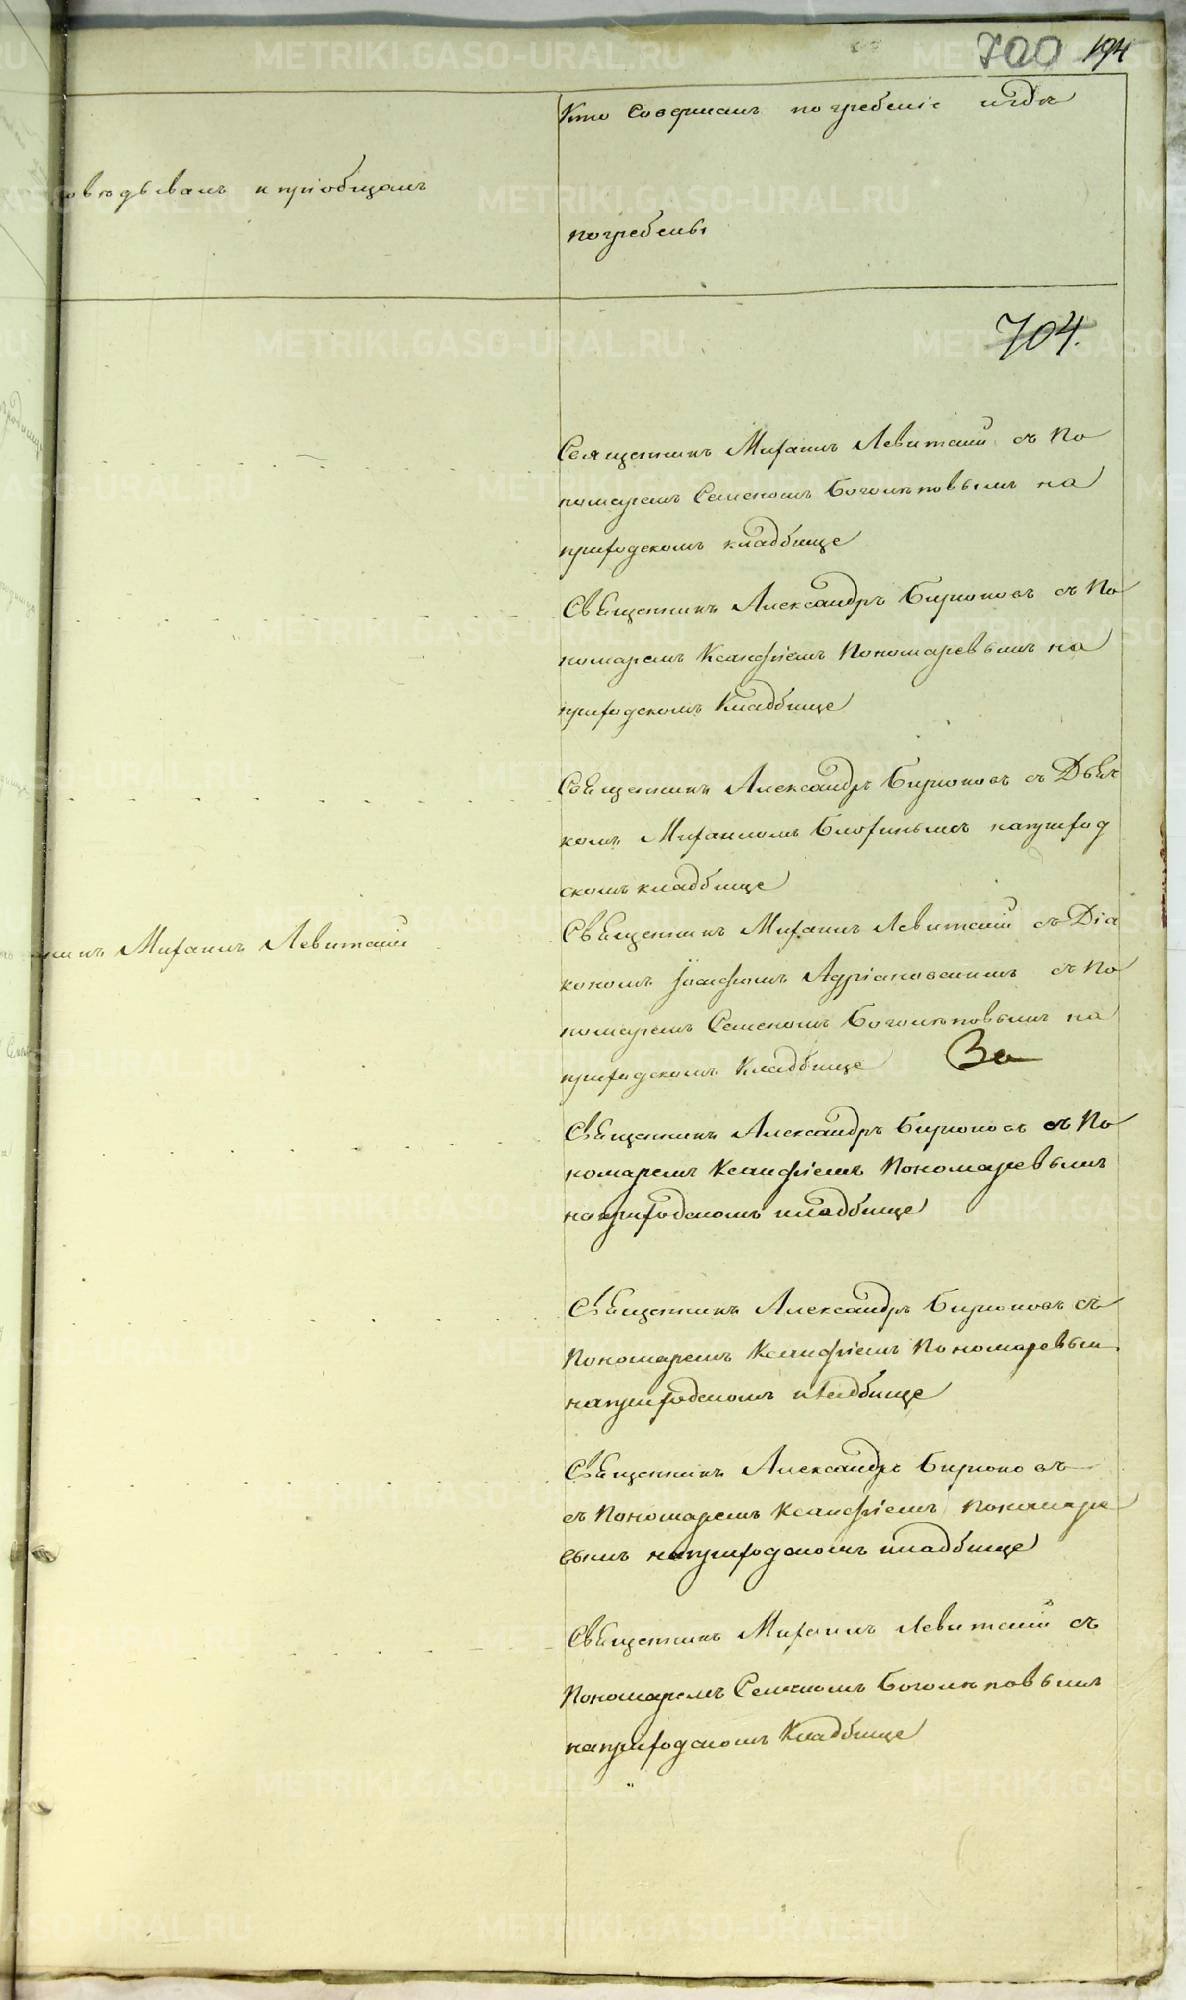 700 194
Кто Совершалъ погребеніе и гдѣ
овѣдывалъ и пріобщалъ
погребены
704.
Священникъ Михаилъ Левитскій съ По
номаремъ Семеномъ Боголѣповымъ на
приходскомъ кладбище
Священникъ Александръ Бирюковъ съ По
номаремъ Ксанфіемъ Пономаревымъ на
приходскомъ Кладбище
Священникъ Александръ Бирюковъ съ Дьяч
комъ Михаиломъ наприход
скомъ кладбище
Священникъ Михаилъ Левитскій съ Діа
никъ Михаилъ Левитскій
кономъ Іосифомъ Адріановскимъ съ По
номаремъ Семеномъ Боголѣповымъ на
приходскомъ Кладбище
Священникъ Александръ Бирюковъ съ По
номаремъ Ксанфіемъ Пономаревымъ
наприходскомъ кладбище
Священникъ Александръ Бирюковъ съ
Пономаремъ Ксанфіемъ Пономаревым
наприходскомъ кладбище
Священникъ Александръ Бирюковъ
съ Пономаремъ Ксанфіемъ Пономаре
вымъ наприходскомъ кладбище
Священникъ Михаилъ Левитскій съ
Пономаремъ Семеномъ Боголѣповымъ
наприходскомъ Кладбище
METRIKI.GASO-URAL.RU